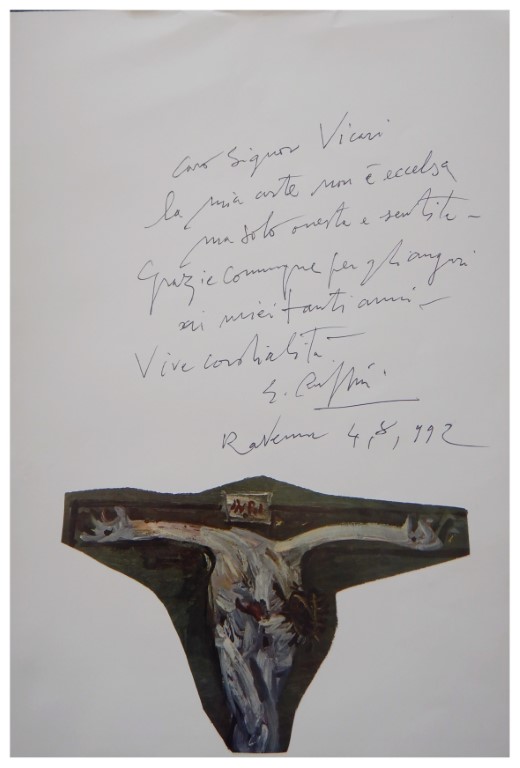 Caro Signor Vicari
la mia arte non è eccelsa
ma solo onesta e sentita –
Grazie comunque per gli auguri
ai miei tanti anni –
Vive cordialità –
G. Ruffini
Ravenna 4,8,992
INRI